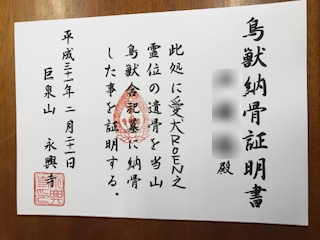 鳥獣納骨証明書
殿
此処に愛犬ROEN之
霊位の遺骨を当山
鳥獣合祀墓に納骨
した事を証明する。
平成三十一年 二月二十一日
巨泉山 永興寺